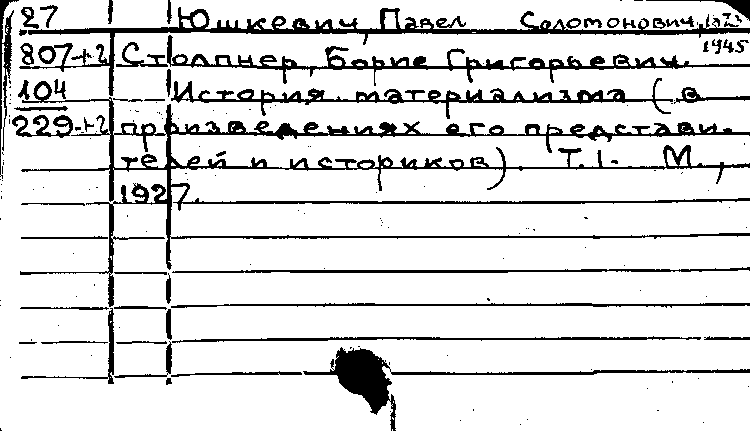 27 Юшкевич, Павел Соломонович, 1873
807+2 Столпнер, Борис Григорьевич. 1945
104 История материализма (в
229+2 произведениях его представи-
телей и историков). Т.1. М.,
1927.